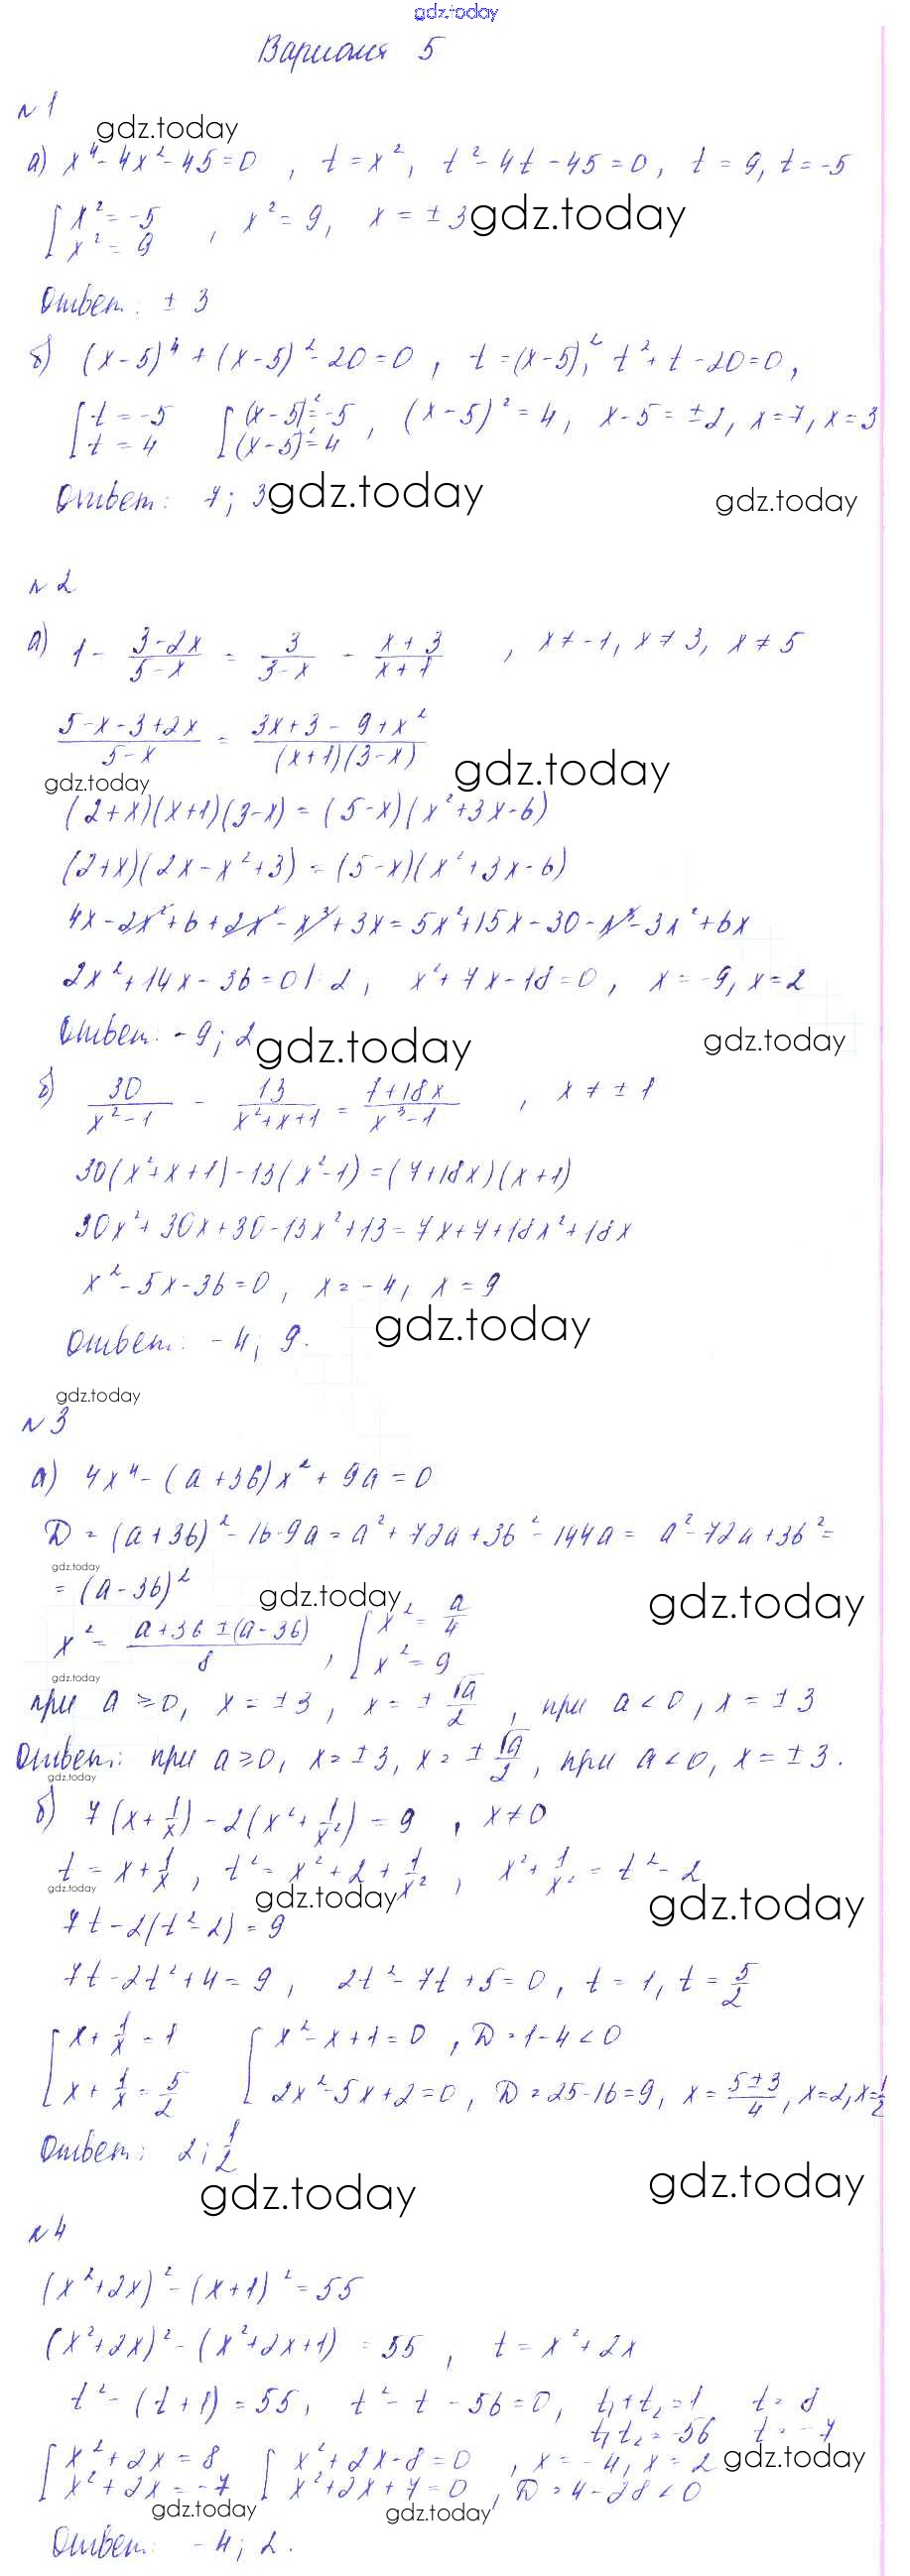 gdz.today
Вариант 5
№1
gdz.today
а) x⁴ - 4x² - 45 = 0 , t = x², t² - 4t - 45 = 0, t = 9, t = -5
[ x² = -5
x² = 9 , x² = 9, x = ± 3 gdz.today
Ответ: ± 3
б) (x-5)⁴ + (x-5)² - 20 = 0 , t = (x-5)², t² + t - 20 = 0,
[ t = -5 [ (x-5)² = -5
t = 4 (x-5)² = 4 , (x-5)² = 4, x-5 = ±2, x = 7, x = 3
Ответ: 7; 3 gdz.today gdz.today
№2
а) 1 - (3-2x)/(5-x) = 3/(3-x) - (x+3)/(x+1) , x ≠ -1, x ≠ 3, x ≠ 5
(5-x-3+2x)/(5-x) = (3x+3-9+x²)/((x+1)(3-x)) gdz.today
gdz.today
(2+x)(x+1)(3-x) = (5-x)(x²+3x-6)
(2+x)(2x-x²+3) = (5-x)(x²+3x-6)
4x-2x²+6+2x²-x³+3x = 5x²+15x-30-x³-3x²+6x
2x²+14x-36 = 0 |:2 , x²+7x-18 = 0 , x = -9, x = 2
Ответ: -9; 2 gdz.today gdz.today
б) 30/(x²-1) - 13/(x²+x+1) = (7+18x)/(x³-1) , x ≠ ± 1
30(x²+x+1) - 13(x²-1) = (7+18x)(x+1)
30x²+30x+30-13x²+13 = 7x+7+18x²+18x
x²-5x-36 = 0 , x = -4, x = 9
Ответ: -4; 9. gdz.today
gdz.today
№3
а) 4x⁴ - (a+36)x² + 9a = 0
D = (a+36)² - 16·9a = a²+72a+36²-144a = a²-72a+36² =
gdz.today
= (a-36)² gdz.today gdz.today
x² = (a+36±(a-36))/8 , [ x² = a/4
x² = 9
gdz.today
при a ≥ 0, x = ±3 , x = ± √a/2 , при a < 0, x = ± 3
Ответ: при a ≥ 0, x = ±3, x = ± √a/2, при a < 0, x = ± 3.
gdz.today
б) 7(x+1/x) - 2(x²+1/x²) = 9 , x ≠ 0
t = x+1/x , t² = x²+2+1/x² , x²+1/x² = t²-2
gdz.today gdz.today gdz.today
7t-2(t²-2) = 9
7t-2t²+4 = 9 , 2t²-7t+5 = 0, t = 1, t = 5/2
[ x+1/x = 1 [ x²-x+1 = 0 , D = 1-4 < 0
x+1/x = 5/2 2x²-5x+2 = 0 , D = 25-16 = 9, x = (5±3)/4 , x = 2, x = 1/2
Ответ: 2; 1/2
gdz.today gdz.today
№4
(x²+2x)² - (x+1)² = 55
(x²+2x)² - (x²+2x+1) = 55 , t = x²+2x
t² - (t+1) = 55, t² - t - 56 = 0, t₁+t₂ = 1 t = 8
t₁t₂ = -56 t = -7
[ x²+2x = 8 [ x²+2x-8 = 0 , x = -4, x = 2 gdz.today
x²+2x = -7 x²+2x+7 = 0 , D = 4-28 < 0
gdz.today gdz.today
Ответ: -4; 2.